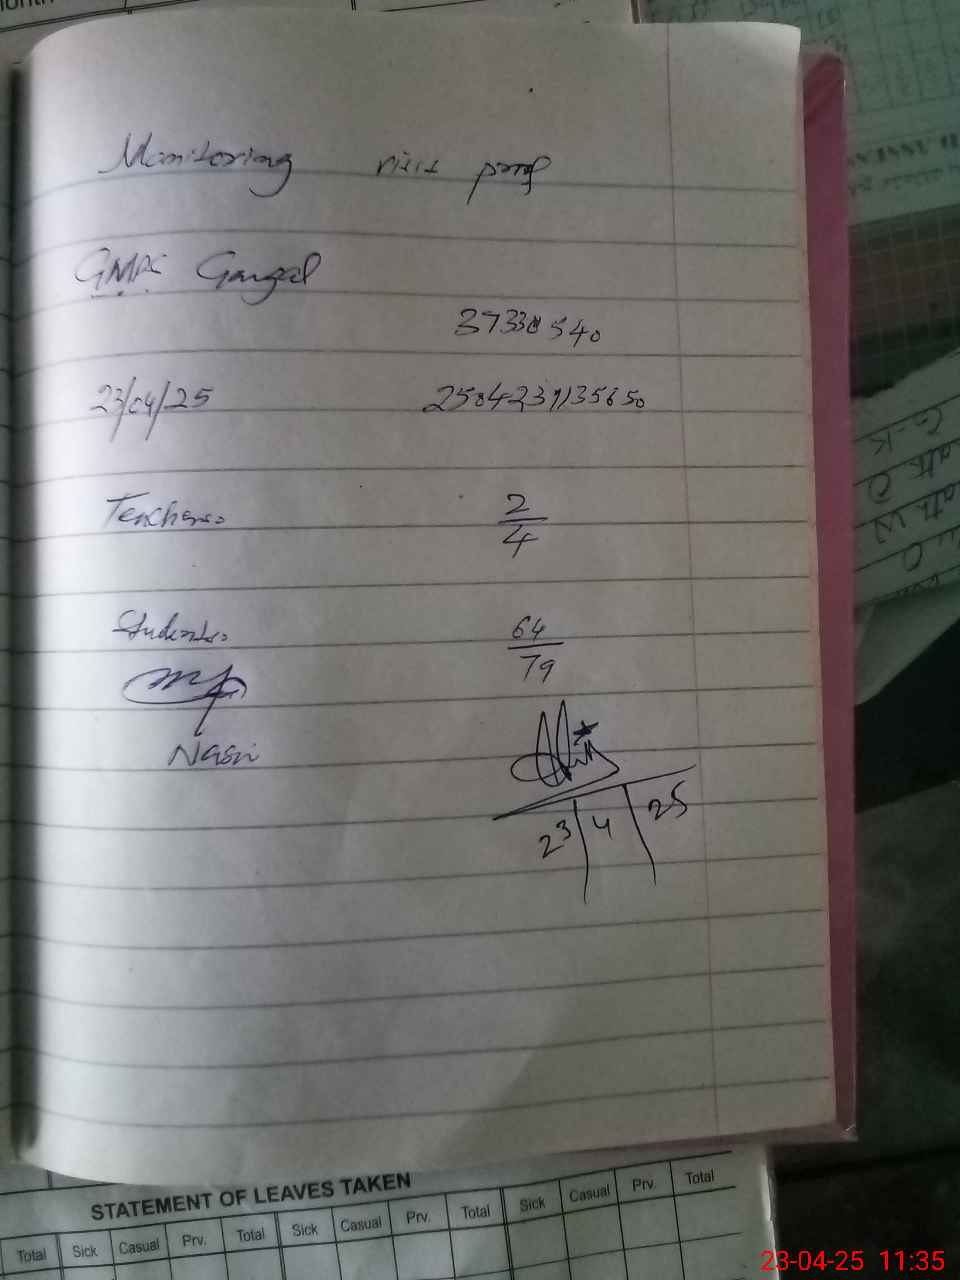 Monitoring visit proof
GMPS Gangal
37330540
23/04/25 2504231135650
Teachers 2/4
Students 64/79
Nasir
23/4/25
STATEMENT OF LEAVES TAKEN
Total Sick Casual Prv. Total Sick Casual Prv. Total Sick Casual Prv. Total
23-04-25 11:35